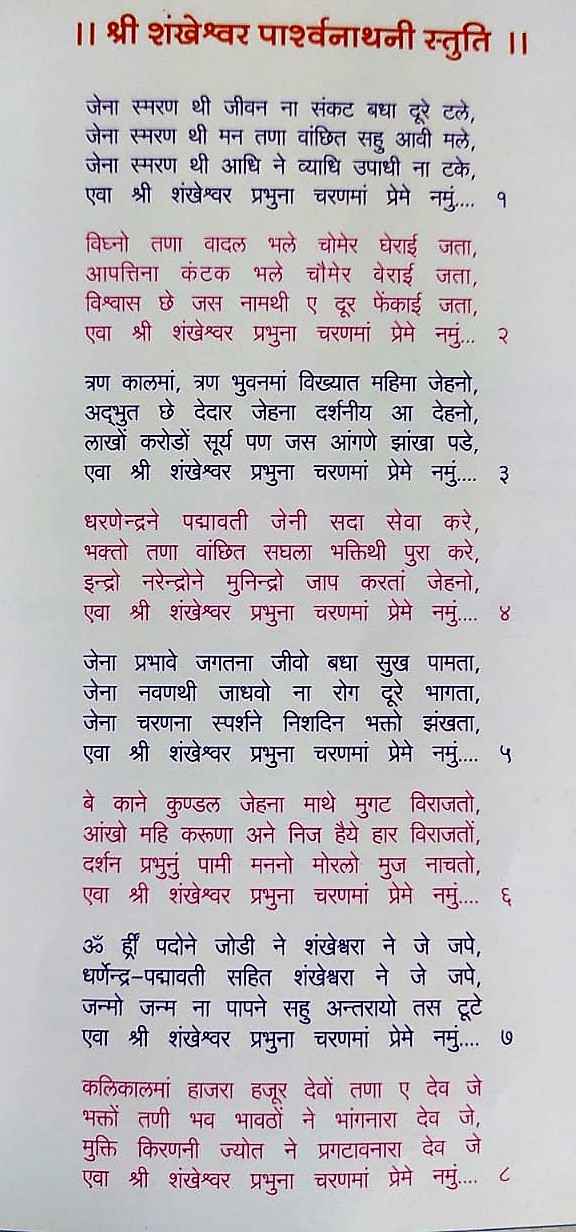 ।। श्री शंखेश्वर पार्श्वनाथनी स्तुति ।।
जेना स्मरण थी जीवन ना संकट बधा दूरे टले,
जेना स्मरण थी मन तणा वांछित सहु आवी मले,
जेना स्मरण थी आधि ने व्याधि उपाधी ना टके,
एवा श्री शंखेश्वर प्रभुना चरणमां प्रेमे नमुं.... १
विघ्नो तणा वादल भले चोमेर घेराई जता,
आपत्तिना कंटक भले चौमेर वेराई जता,
विश्वास छे जस नामथी ए दूर फेंकाई जता,
एवा श्री शंखेश्वर प्रभुना चरणमां प्रेमे नमुं... २
त्रण कालमां, त्रण भुवनमां विख्यात महिमा जेहनो,
अद्भुत छे देदार जेहना दर्शनीय आ देहनो,
लाखों करोडों सूर्य पण जस आंगणे झांखा पडे,
एवा श्री शंखेश्वर प्रभुना चरणमां प्रेमे नमुं.... ३
धरणेन्द्रने पद्मावती जेनी सदा सेवा करे,
भक्तो तणा वांछित सघला भक्तिथी पुरा करे,
इन्द्रो नरेन्द्रोने मुनिन्द्रो जाप करतां जेहनो,
एवा श्री शंखेश्वर प्रभुना चरणमां प्रेमे नमुं.... ४
जेना प्रभावे जगतना जीवो बधा सुख पामता,
जेना नवणथी जाधवो ना रोग दूरे भागता,
जेना चरणना स्पर्शने निशदिन भक्तो झंखता,
एवा श्री शंखेश्वर प्रभुना चरणमां प्रेमे नमुं.... ५
बे काने कुण्डल जेहना माथे मुगट विराजतो,
आंखो महि करूणा अने निज हैये हार विराजतों,
दर्शन प्रभुनुं पामी मननो मोरलो मुज नाचतो,
एवा श्री शंखेश्वर प्रभुना चरणमां प्रेमे नमुं.... ६
ॐ ह्रीं पदोने जोडी ने शंखेश्वरा ने जे जपे,
धर्णेन्द्र-पद्मावती सहित शंखेश्वरा ने जे जपे,
जन्मो जन्म ना पापने सहु अन्तरायो तस टूटे
एवा श्री शंखेश्वर प्रभुना चरणमां प्रेमे नमुं.... ७
कलिकालमां हाजरा हजूर देवों तणा ए देव जे
भक्तों तणी भव भावठों ने भांगनारा देव जे,
मुक्ति किरणनी ज्योत ने प्रगटावनारा देव जे
एवा श्री शंखेश्वर प्रभुना चरणमां प्रेमे नमुं.... ८